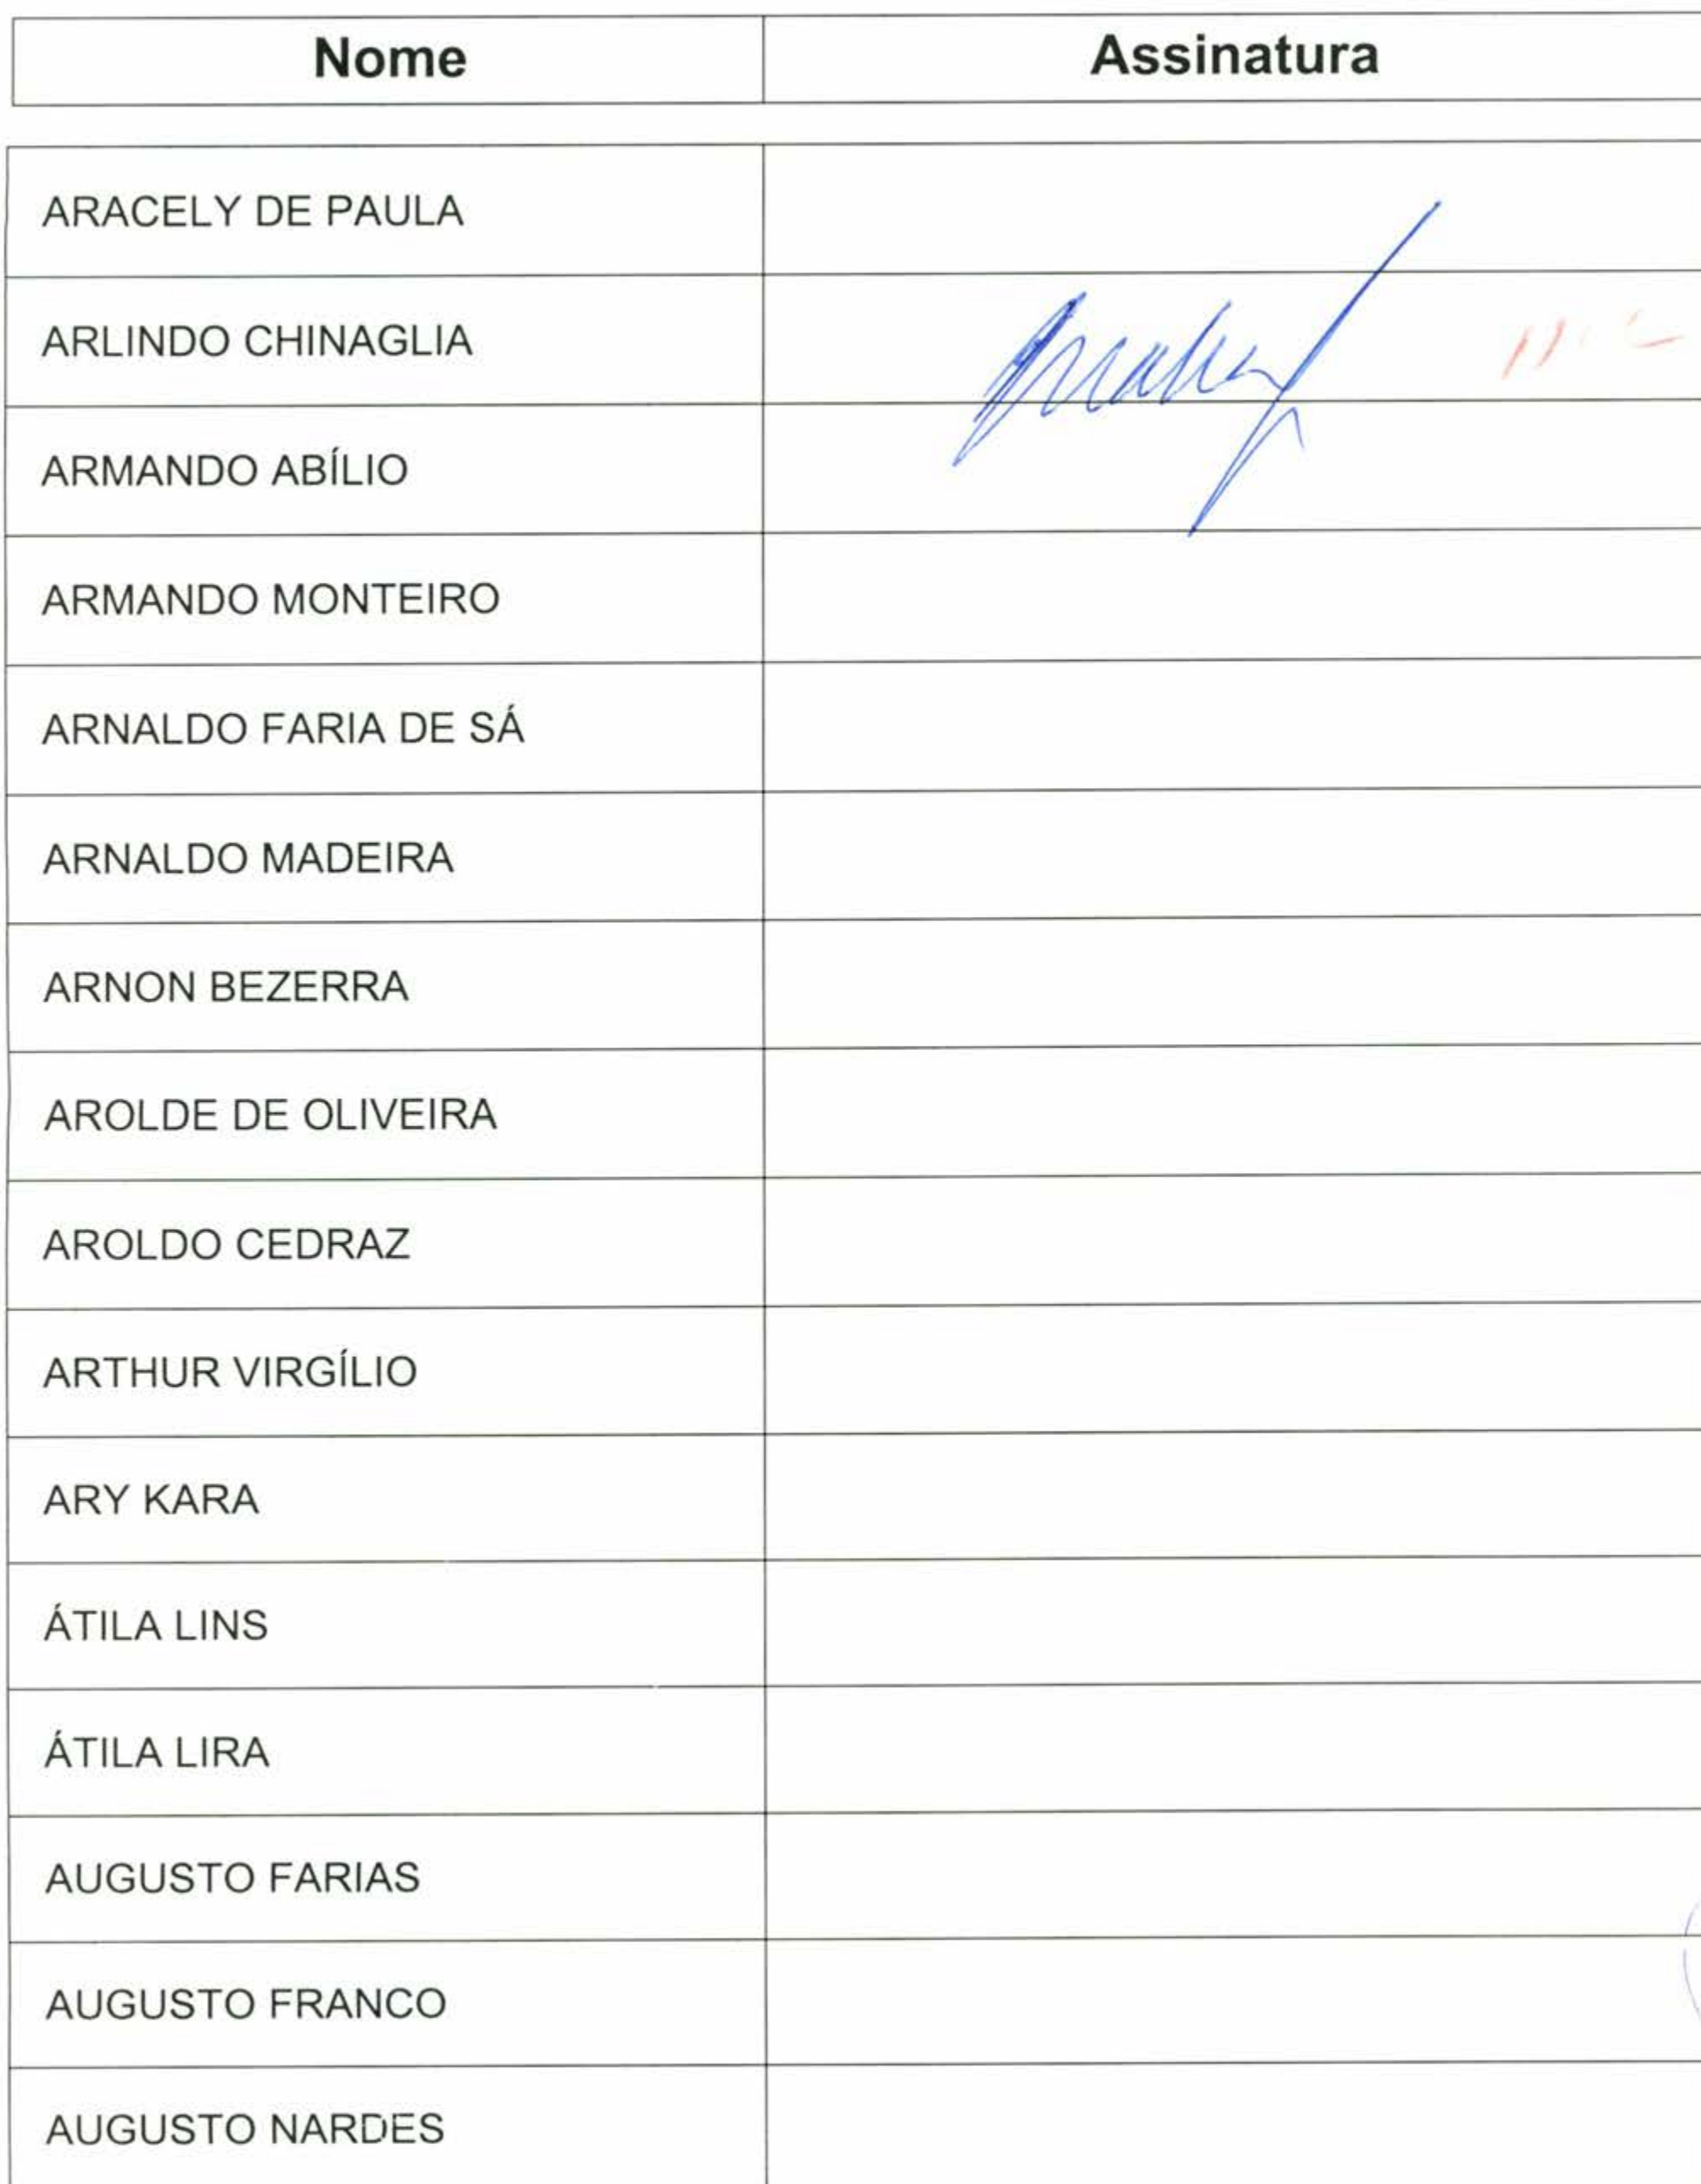 Nome Assinatura
ARACELY DE PAULA
ARLINDO CHINAGLIA
ARMANDO ABÍLIO
ARMANDO MONTEIRO
ARNALDO FARIA DE SÁ
ARNALDO MADEIRA
ARNON BEZERRA
AROLDE DE OLIVEIRA
AROLDO CEDRAZ
ARTHUR VIRGÍLIO
ARY KARA
ÁTILA LINS
ÁTILA LIRA
AUGUSTO FARIAS
AUGUSTO FRANCO
AUGUSTO NARDES